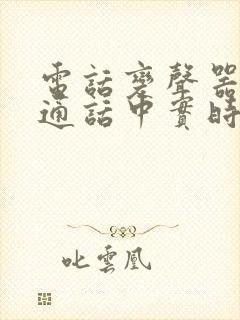 電話變聲器
通話中實時
叱雲凰